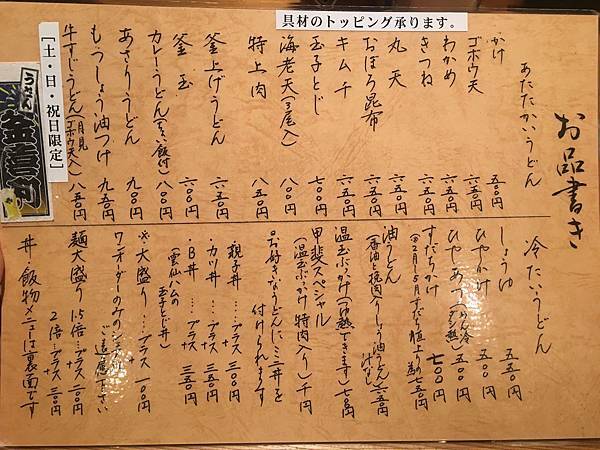 具材のトッピング承ります。
お品書き
あたたかいうどん
かけ 五〇〇円
ゴボウ天 六五〇円
わかめ 六五〇円
きつね 六五〇円
丸天 六五〇円
おぼろ昆布 六五〇円
キムチ 六五〇円
玉子とじ 七〇〇円
海老天(三尾入) 八〇〇円
特上肉 八五〇円
釜上げうどん 六〇〇円
釜玉 六〇〇円
カレーうどん(ちい飯付) 九〇〇円
あさりうどん 九〇〇円
もうしょう油つけ 九五〇円
牛すじうどん(月見ゴボウ天入) 八五〇円
[土・日・祝日限定]
うどん
釜喜利
冷たいうどん
しょうゆ 五五〇円
ひやかけ 五〇〇円
ひやあつ(めん冷ダシ熱) 五〇〇円
すだちかけ 七〇〇円
油うどん
温玉ぶっかけ(冷熱できます) 七〇〇円
甲斐スペシャル
(温玉ぶっかけ 特肉入り) 千円
お好きなうどんにミニ丼を
付けられます
親子丼……プラス 三〇〇円
・カツ丼……プラス 三五〇円
・B丼……プラス 三五〇円
(雲仙ハムの
玉子とじ丼)
※大盛り……プラス 一〇〇円
ワンオーダーのみのシェアは
ご遠慮下さい
麺大盛り 1.5倍…プラス 一〇〇円
2倍…プラス 二〇〇円
丼・飯物メニューは裏面です